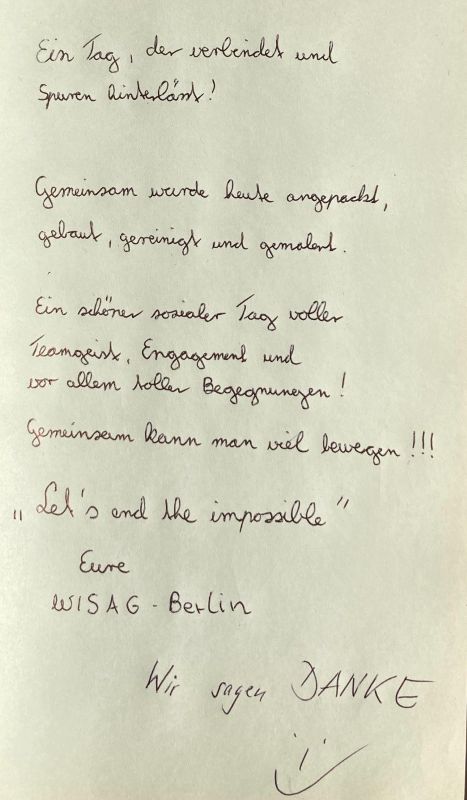 Ein Tag, der verbindet und
Spuren hinterlässt!
Gemeinsam wurde heute angepackt,
gebaut, gereinigt und gemalert.
Ein schöner sozialer Tag voller
Teamgeist, Engagement und
vor allem toller Begegnungen!
Gemeinsam kann man viel bewegen!!!
„Let's end the impossible"
Eure
WISAG - Berlin
Wir sagen DANKE